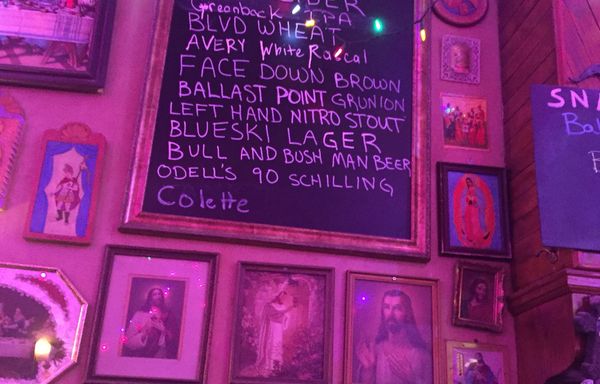 Greenback IPA
BLVD WHEAT
AVERY White Rascal
FACE DOWN BROWN
BALLAST POINT GRUNION
LEFT HAND NITRO STOUT
BLUESKI LAGER
BULL AND BUSH MAN BEER
ODELL'S 90 SCHILLING
Colette